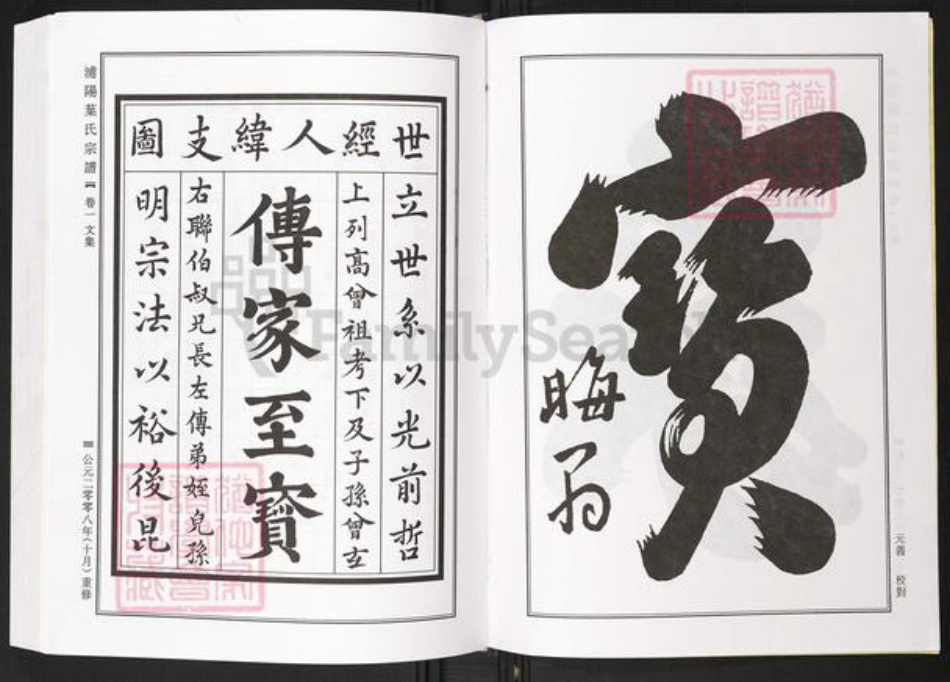 寶
晦翁
元善 校對
世經人緯支圖
立世系以光前哲
上列高曾祖考下及子孫曾玄
傳家至寶
右聯伯叔兄長左傳弟姪兒孫
明宗法以裕後昆
浦陽葉氏宗譜 卷一 文集
公元二零零八年(十月)重修
FamilySearch